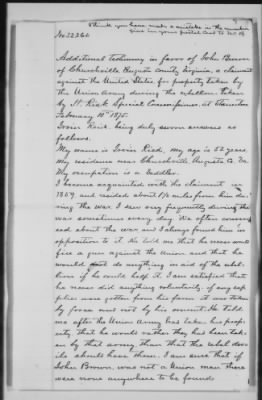 I think you have made a mistake in the number
given in your postal card to Mr B
No. 22366
Additional testimony in favor of John Brown
of Churchville Augusta County Virginia, a claimant
against the United States for property taken by
the Union Army during the rebellion taken
by H. Risk Special Commissioner, at Staunton
February 10th 1875.
Irvin Reid, being duly sworn answers as
follows.
My name is Irvin Reid, my age is 52 years.
My residence near Churchville Augusta Co. Va.
My occupation is a Saddler.
I became acquainted with the claimant in
1859 and resided about 1½ miles from him du-
ring the war. I saw him frequently during the
war sometimes every day. We often convers-
sed about the war and I always found him in
opposition to it. He told me that he never would
fire a gun against the Union and that he
would not do anything in aid of the rebel-
lion if he could help it. I am satisfied that
he never did anything voluntarily. if any sup-
plies were gotten from his farm it was taken
by force and not by his consent. He told
me after the Union Army had taken his prop-
erty that he would rather they has been tak-
en by that army than that the rebel dev-
ils should have them. I am sure that if
John Brown, was not a Union man there
were none anywhere to be found